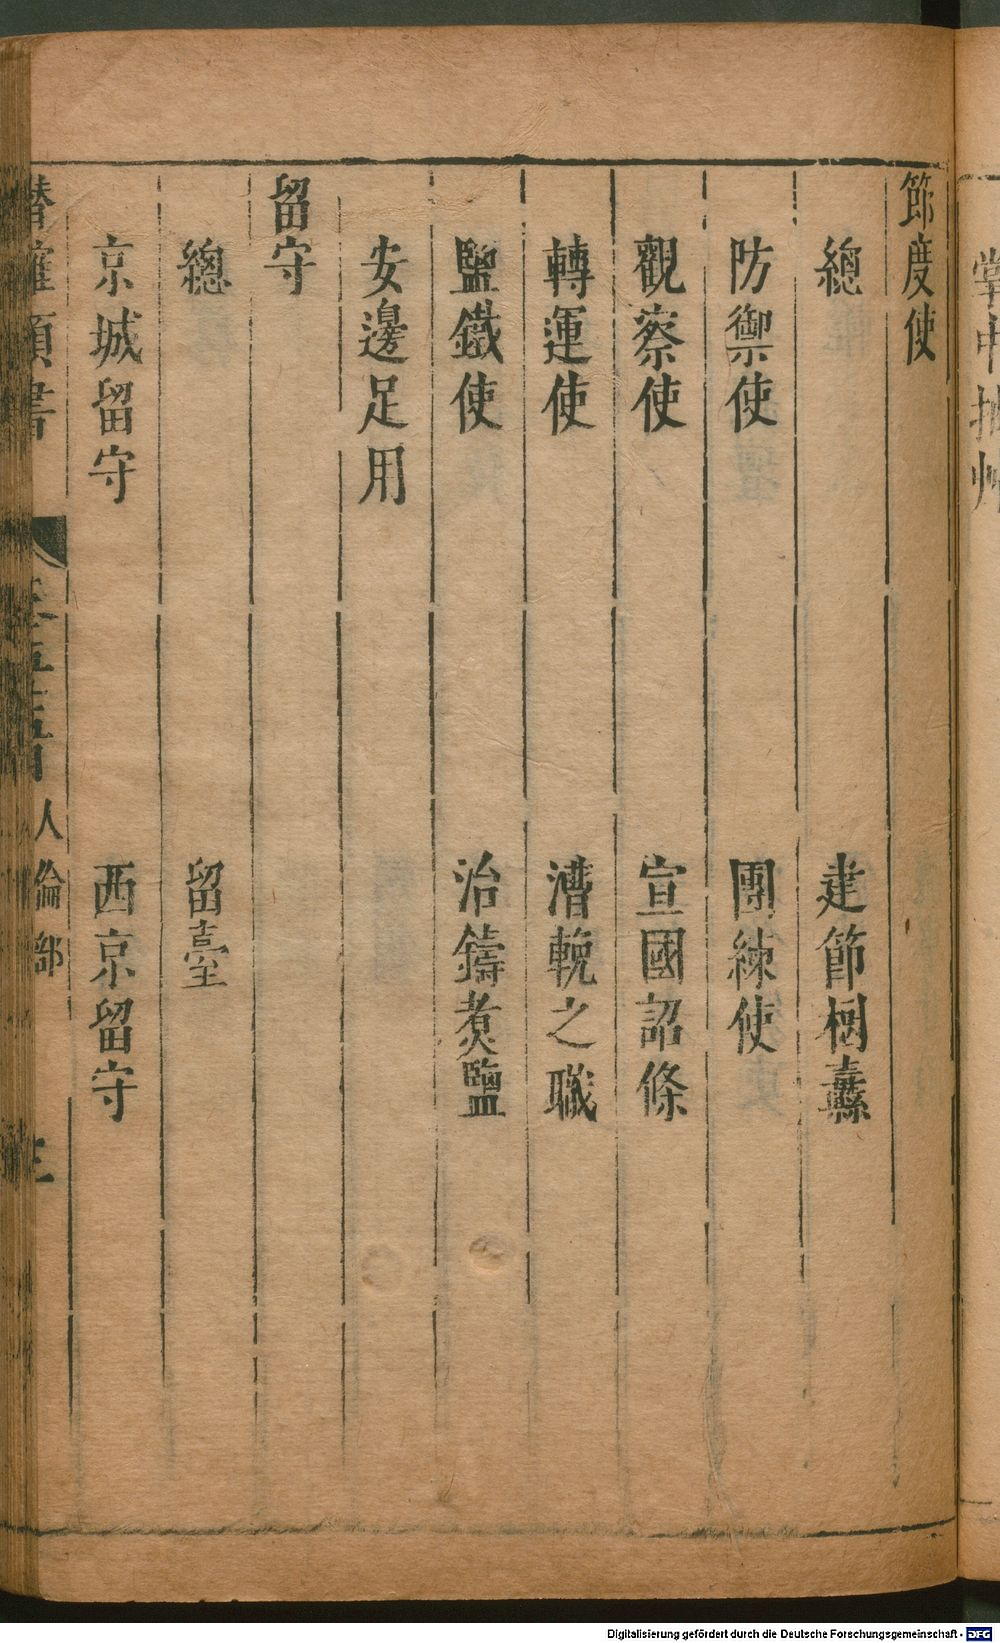 節度使
總 建節樹纛
防禦使 團練使
觀察使 宣國詔條
轉運使 漕輓之職
鹽鐵使 治鑄煑鹽
安邊足用
留守
總 留臺
京城留守 西京留守
潛確類書
人倫部
三
Digitalisierung gefördert durch die Deutsche Forschungsgemeinschaft - DFG